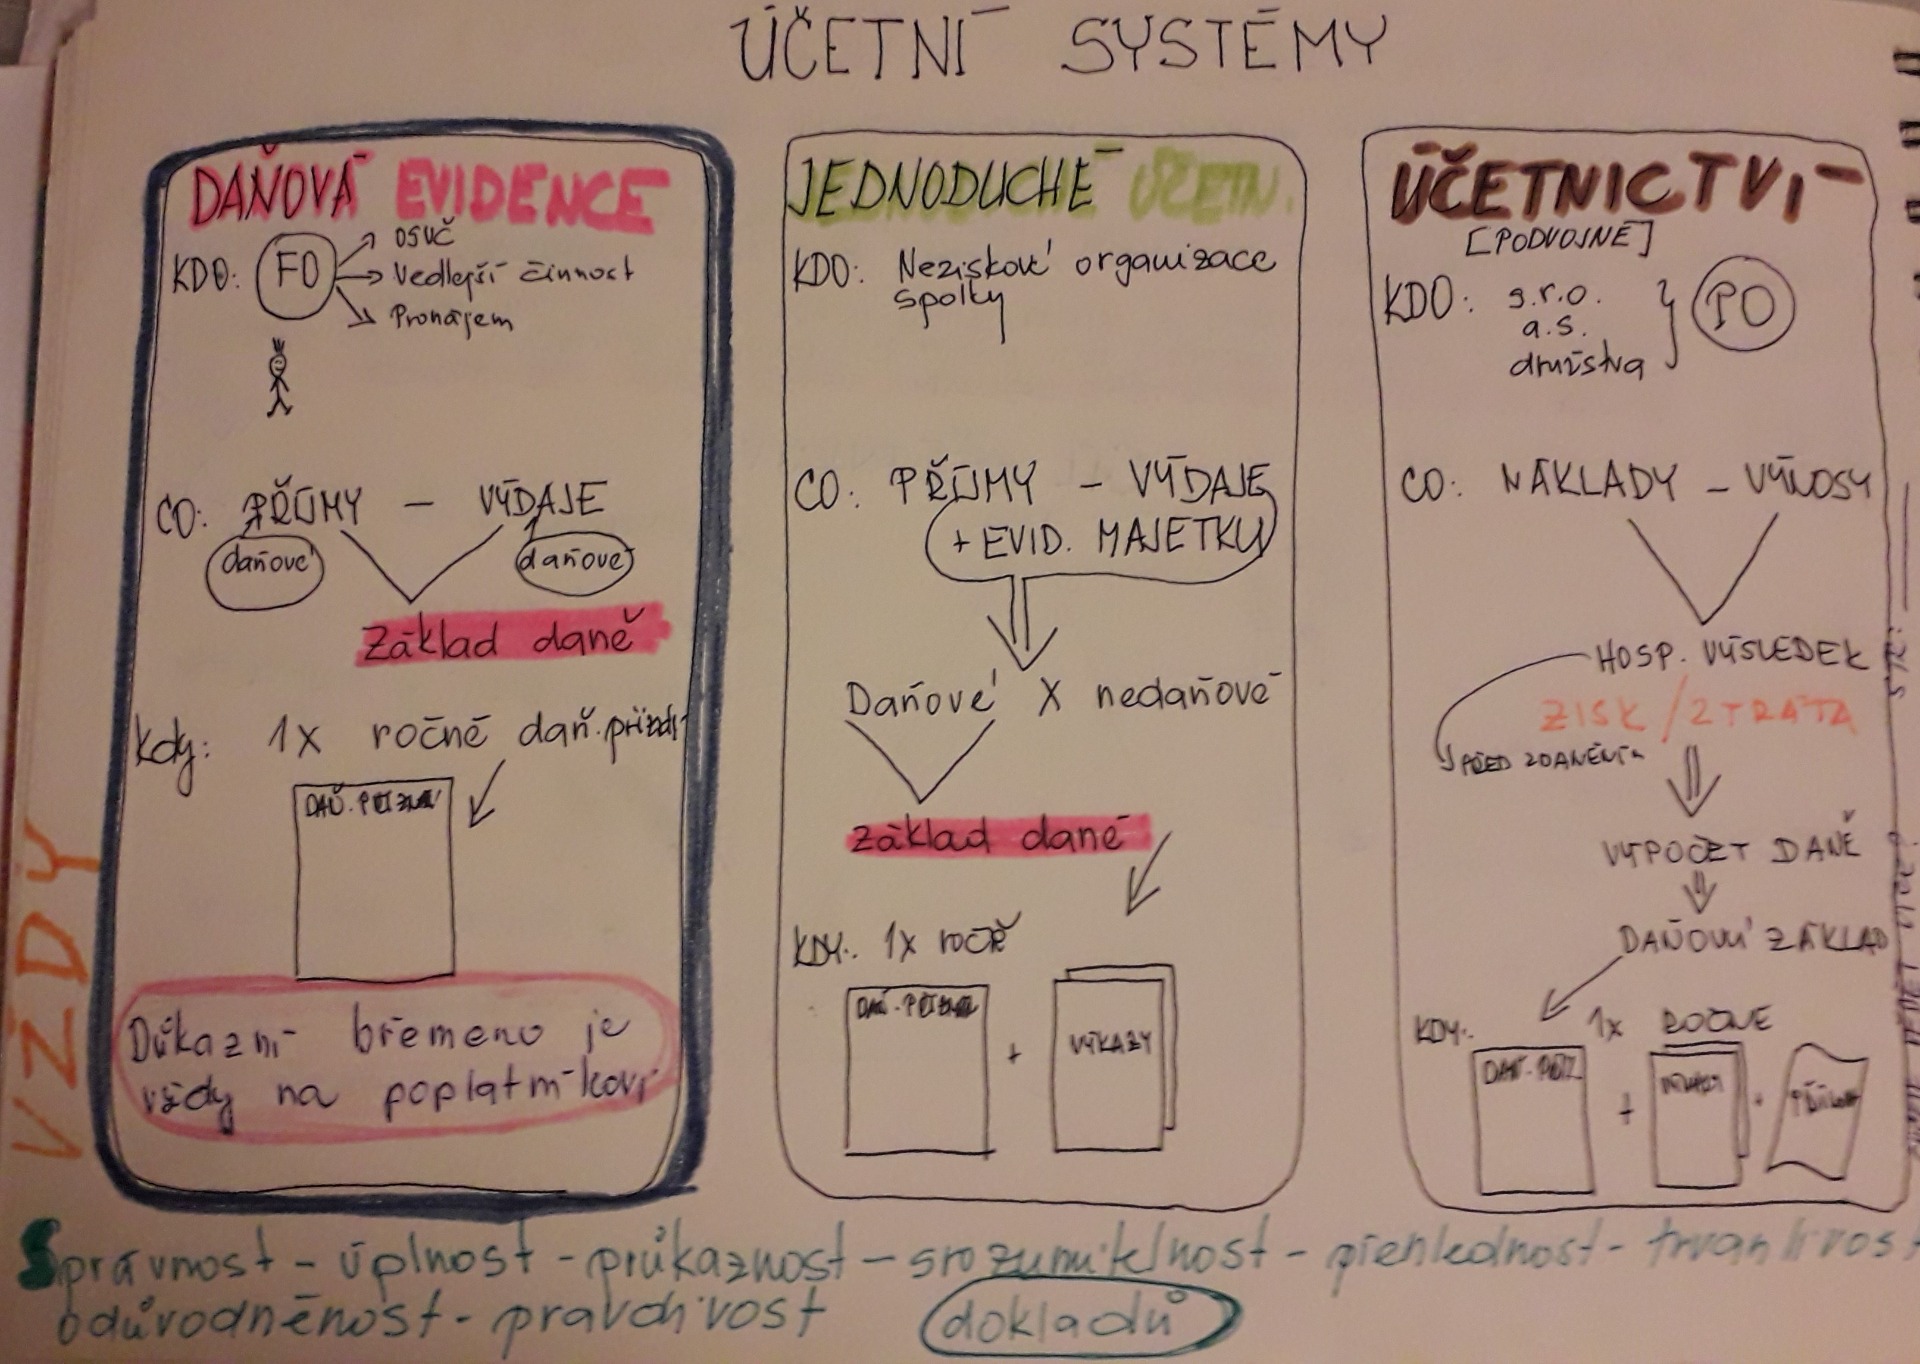 ÚČETNÍ SYSTÉMY
DAŇOVÁ EVIDENCE
KDO: FO
OSVČ
Vedlejší činnost
Pronájem
CO: PŘÍJMY – VÝDAJE
daňové daňové
Základ daně
Kdy: 1x ročně daň. přizn
DAŇ. PŘIZN
Důkazní břemeno je
vždy na poplatníkovi
VŽDY
JEDNODUCHÉ ÚČETN.
KDO: Neziskové organizace
spolky
CO: PŘÍJMY – VÝDAJE
+ EVID. MAJETKU
Daňové X nedaňové
Základ daně
KDY: 1x roč
DAŇ. + VÝKAZY
ÚČETNICTVÍ
[PODVOJNÉ]
KDO: s.r.o.
a.s.
družstva
PO
CO: NÁKLADY – VÝNOSY
HOSP. VÝSLEDEK
ZISK / ZTRÁTA
PŘED ZDANĚNÍM
VÝPOČET DANĚ
DAŇOVÝ ZÁKLAD
KDY: 1x ROČNĚ
DAŇ. PŘIZ + +
Správnost – úplnost – průkaznost – srozumitelnost – přehlednost – trvanlivost
odůvodněnost – pravdivost dokladů